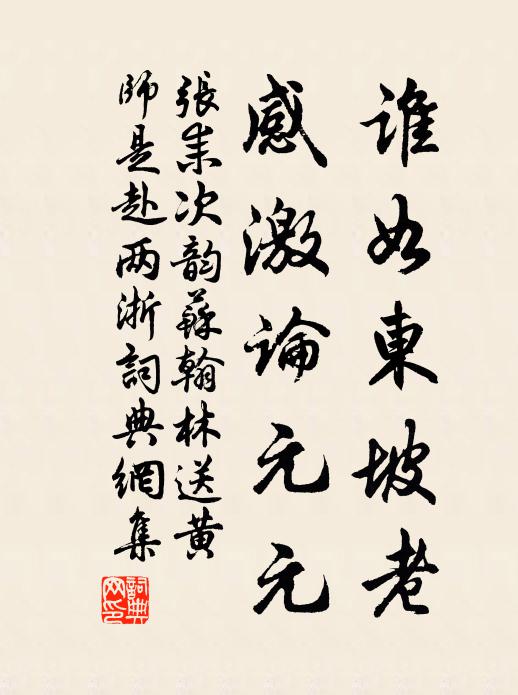 誰如東坡老
感激論元元
張耒次韵蘇翰林送黄
師是赴两浙詞典網集
詞典網印